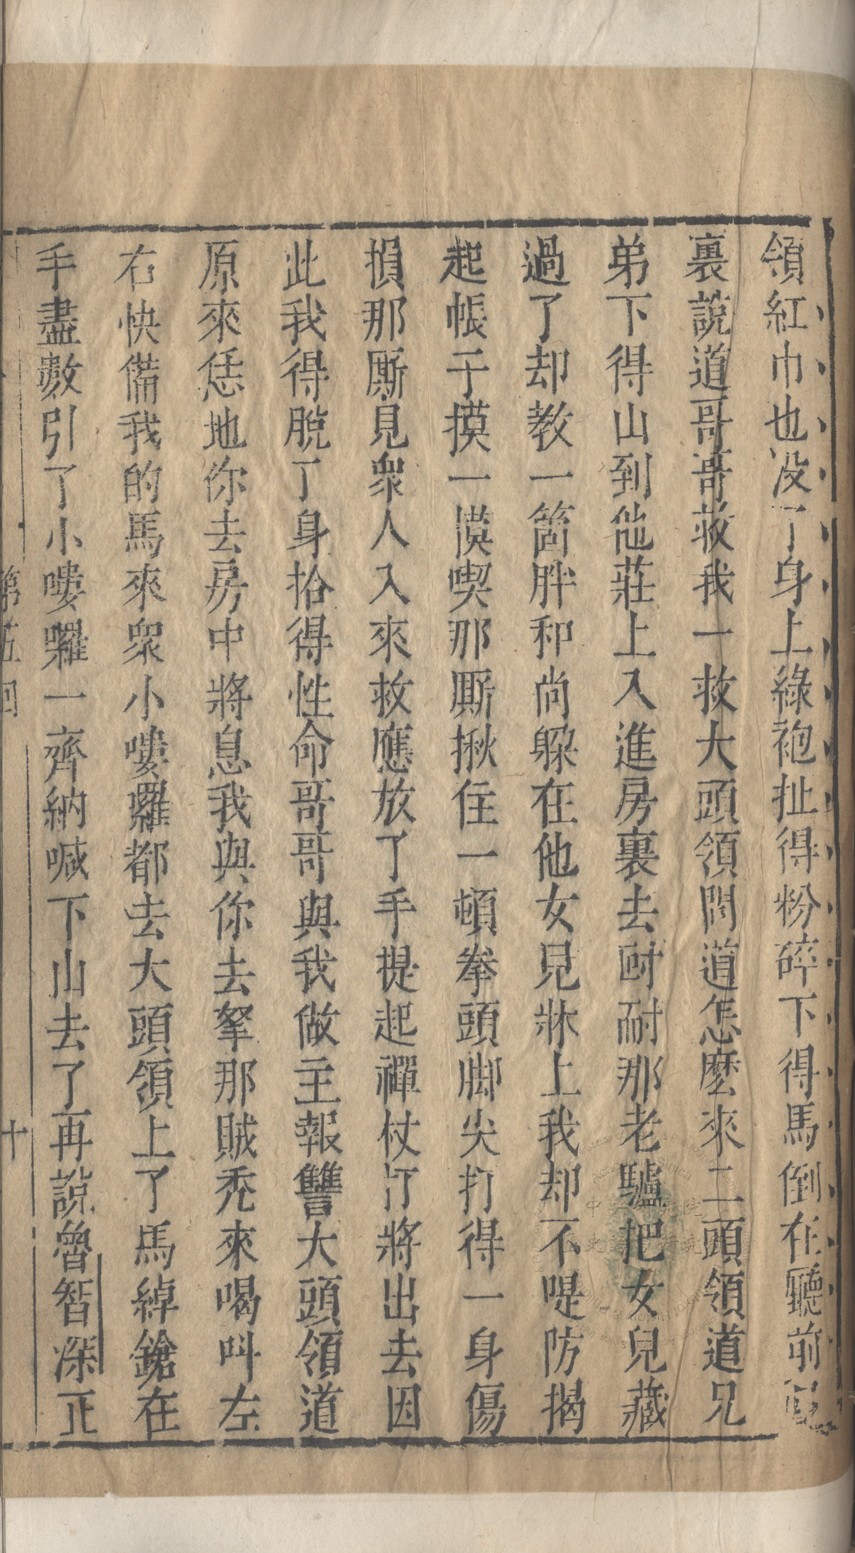 領紅巾也没了身上綠袍扯得粉碎下得馬倒在廳前
裏說道哥哥救我一救大頭領問道怎麽來二頭領道兄
弟下得山到他莊上入進房裏去叵耐那老驢把女兒藏
過了却教一箇胖和尚躱在他女兒牀上我却不㖷防揭
起帳子摸一摸喫那厮揪住一頓拳頭脚尖打得一身傷
損那厮見衆人入來救應放了手提起禪杖打將出去因
此我得脫了身拾得性命哥哥與我做主報讐大頭領道
原來恁地你去房中將息我與你去拏那賊秃來喝叫左
右快備我的馬來衆小嘍囉都去大頭領上了馬綽鎗在
手盡數引了小嘍囉一齊納喊下山去了再說魯智深正
第五回
十